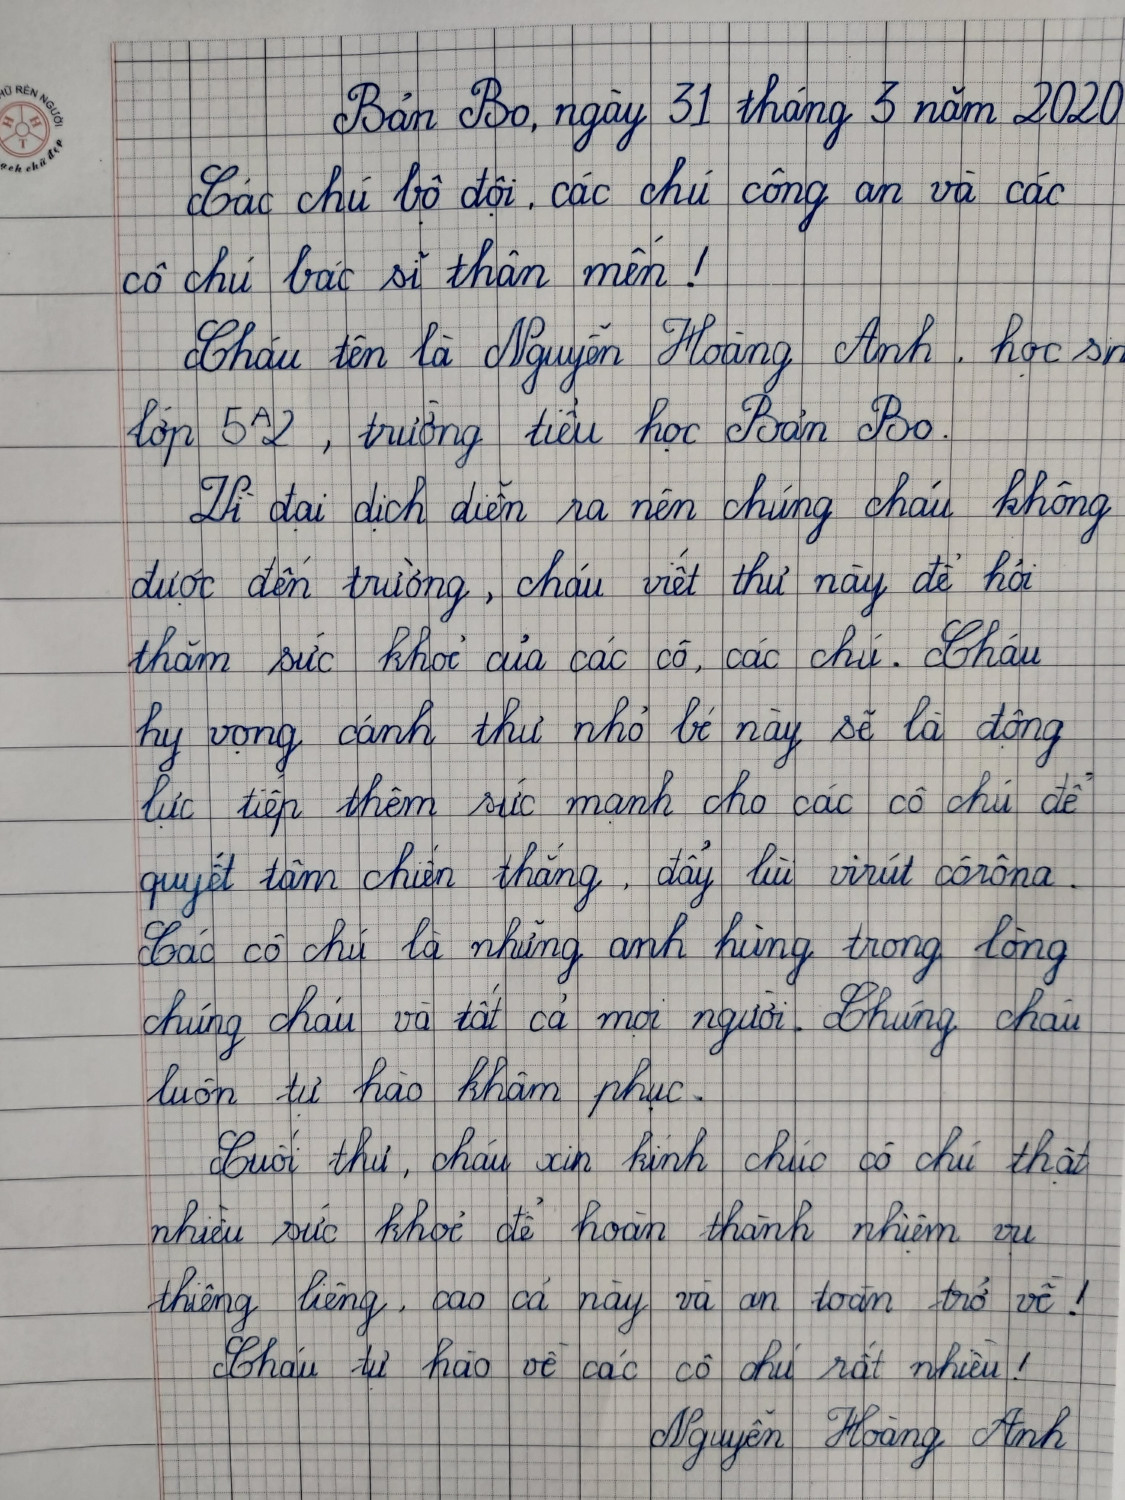 HỮ RÈN NGƯỜI
H H
T
ạch chữ đẹp
Bản Bo, ngày 31 tháng 3 năm 2020
Các chú bộ đội, các chú công an và các
cô chú bác sĩ thân mến!
Cháu tên là Nguyễn Hoàng Anh, học sin
lớp 5A2, trường tiểu học Bản Bo.
Vì đại dịch diễn ra nên chúng cháu không
được đến trường, cháu viết thư này để hỏi
thăm sức khoẻ của các cô, các chú. Cháu
hy vọng cánh thư nhỏ bé này sẽ là động
lực tiếp thêm sức mạnh cho các cô chú để
quyết tâm chiến thắng, đẩy lùi virút côrôna.
Các cô chú là những anh hùng trong lòng
chúng cháu và tất cả mọi người. Chúng cháu
luôn tự hào khâm phục.
Cuối thư, cháu xin kính chúc cô chú thật
nhiều sức khoẻ để hoàn thành nhiệm vụ
thiêng liêng, cao cả này và an toàn trở về!
Cháu tự hào về các cô chú rất nhiều!
Nguyễn Hoàng Anh